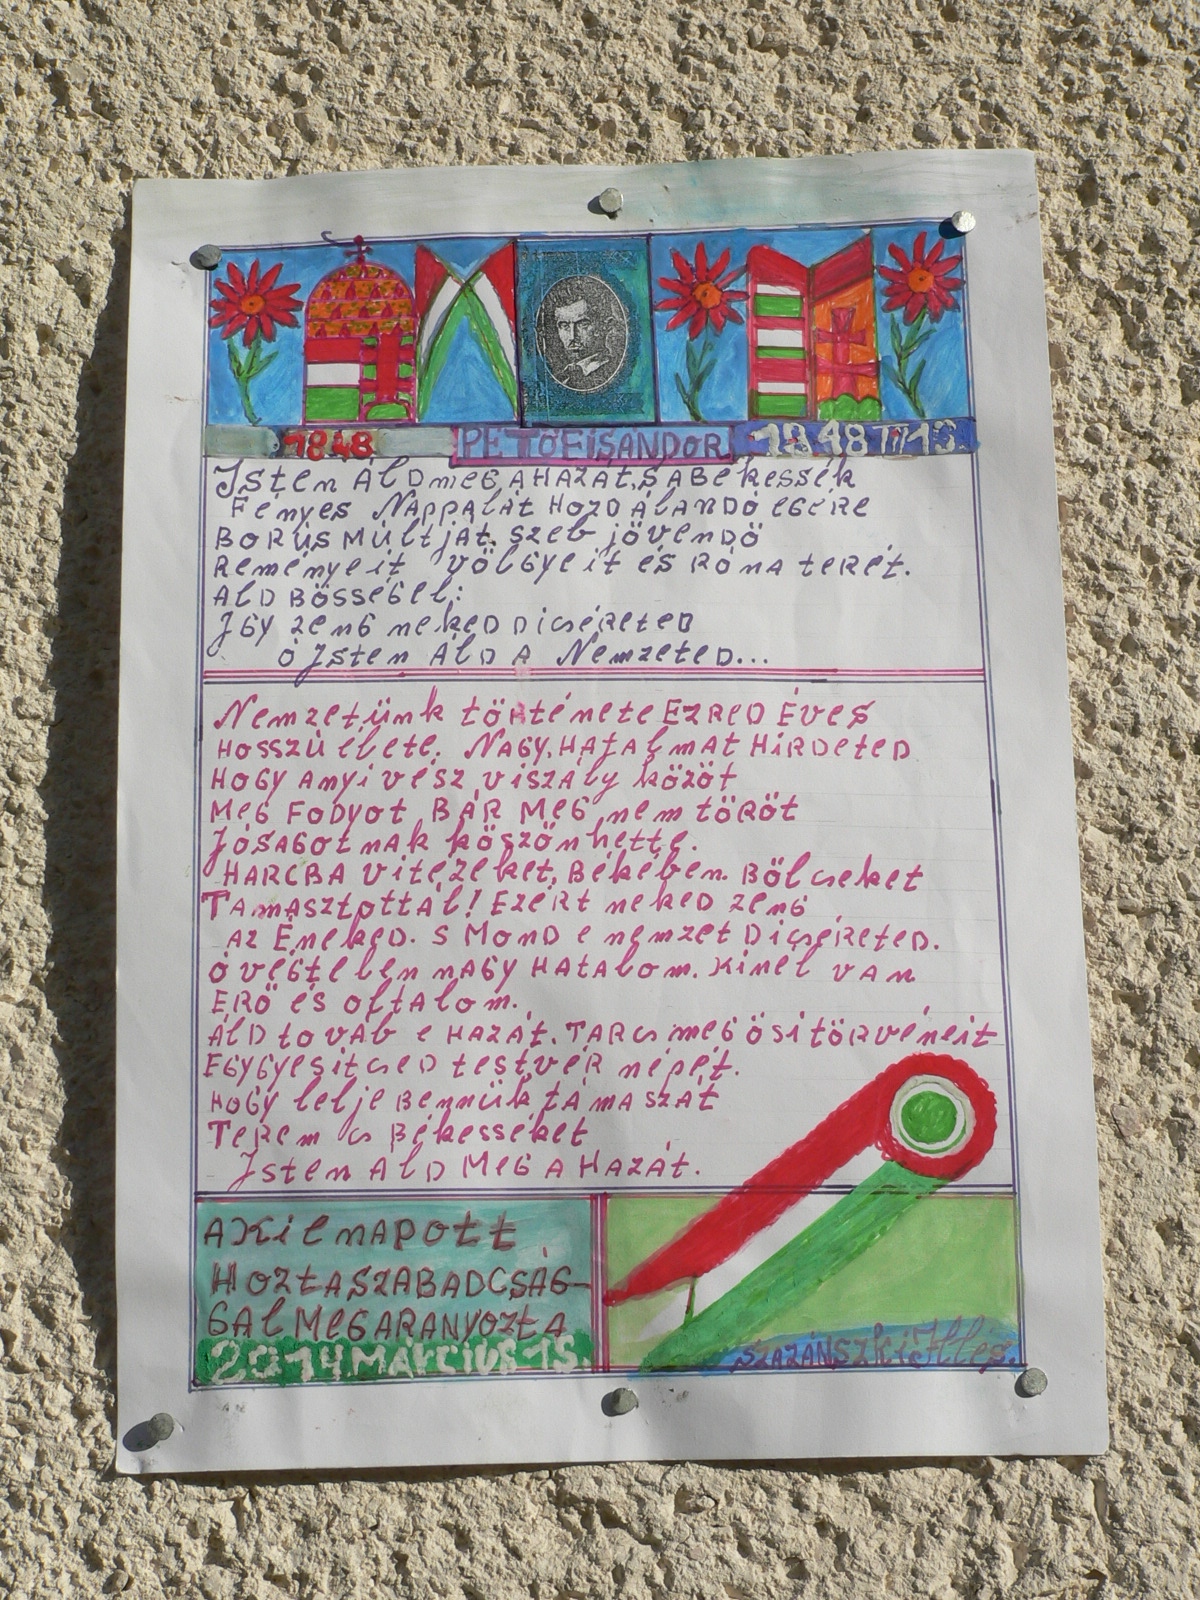 1848 PETŐFI SÁNDOR 1848 III 15.
Isten ÁLD meg A HAZÁT, S A BÉkessék
Fényes NAPPALÁT HOZD ÁLANDÓ EGÉRE
BORÚS MÚLTJÁT. SZEB jövendő
Reményeit völgyeit és RÓNA terét.
ALD BŐSSÉGEL:
IGY ZENG neked Dicséreted
Ó ISten ÁLD A Nemzeted...
Nemzetünk törtÉnete EZRED ÉVES
HOSSZÚ élete. NAGY, HATALMAT HIRDETED
HOGY ANYI vÉSZ viszály közöt
MEG FODYOT BÁR MEG nem töRöt
JóSAGotNAK köszönhette.
HARCBA vitézeket, Békében. Bölcseket
TAMÁSZTOTTÁL! EZÉRT neked zeng
AZ ÉNEKED. S MOND e nemzet Dicséreted.
Ó végtelen nAGY HATAlom. Kinél vAn
ERŐ és oltalom.
ÁLD továb e HAZÁT. TARCs meg ősi törvéneit
EGYGYesitcsed testvér népét.
HOGY lelje Bennük támaszát
TeRem cs Békesséket
Isten ÁLD MEG A HAZÁT.
AKIL NAPOTT
HOZTA SZABADCSÁG-
GAL MEGARANYOZTA
2014 MÁRCIUS 15.
SZAZÁNSZKI Illés.